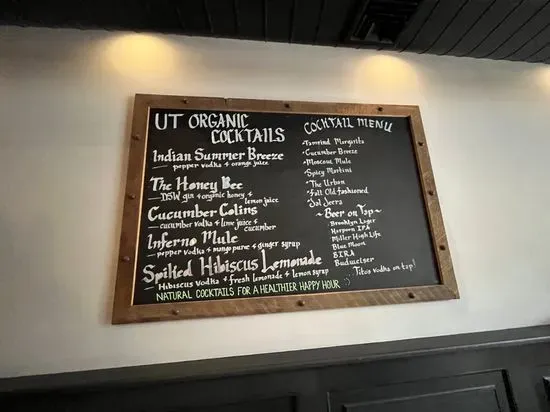 UT ORGANIC
COCKTAILS
Indian Summer Breeze
pepper vodka + orange juice
The Honey Bee
DSW gin + organic honey +
lemon juice
Cucumber Colins
cucumber vodka + lime juice +
cucumber
Inferno Mule
pepper vodka + mango pure + ginger syrup
Spiked Hibiscus Lemonade
Hibiscus vodka + fresh lemonade + lemon syrup
NATURAL COCKTAILS FOR A HEALTHIER HAPPY HOUR :)
COCKTAIL MENU
Tamrind Margarita
Cucumber Breeze
Moscow Mule
Spicy Martini
The Urban
Fall Old fashioned
Jal Jeera
~ Beer on Tap ~
Brooklyn Lager
Harpoon IPA
Miller High Life
Blue Moon
BIRA
Budweiser
Titos vodka on tap!